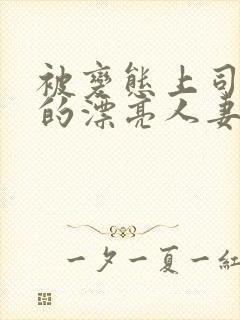 被變態上司
的漂亮人妻
一夕一夏一紅